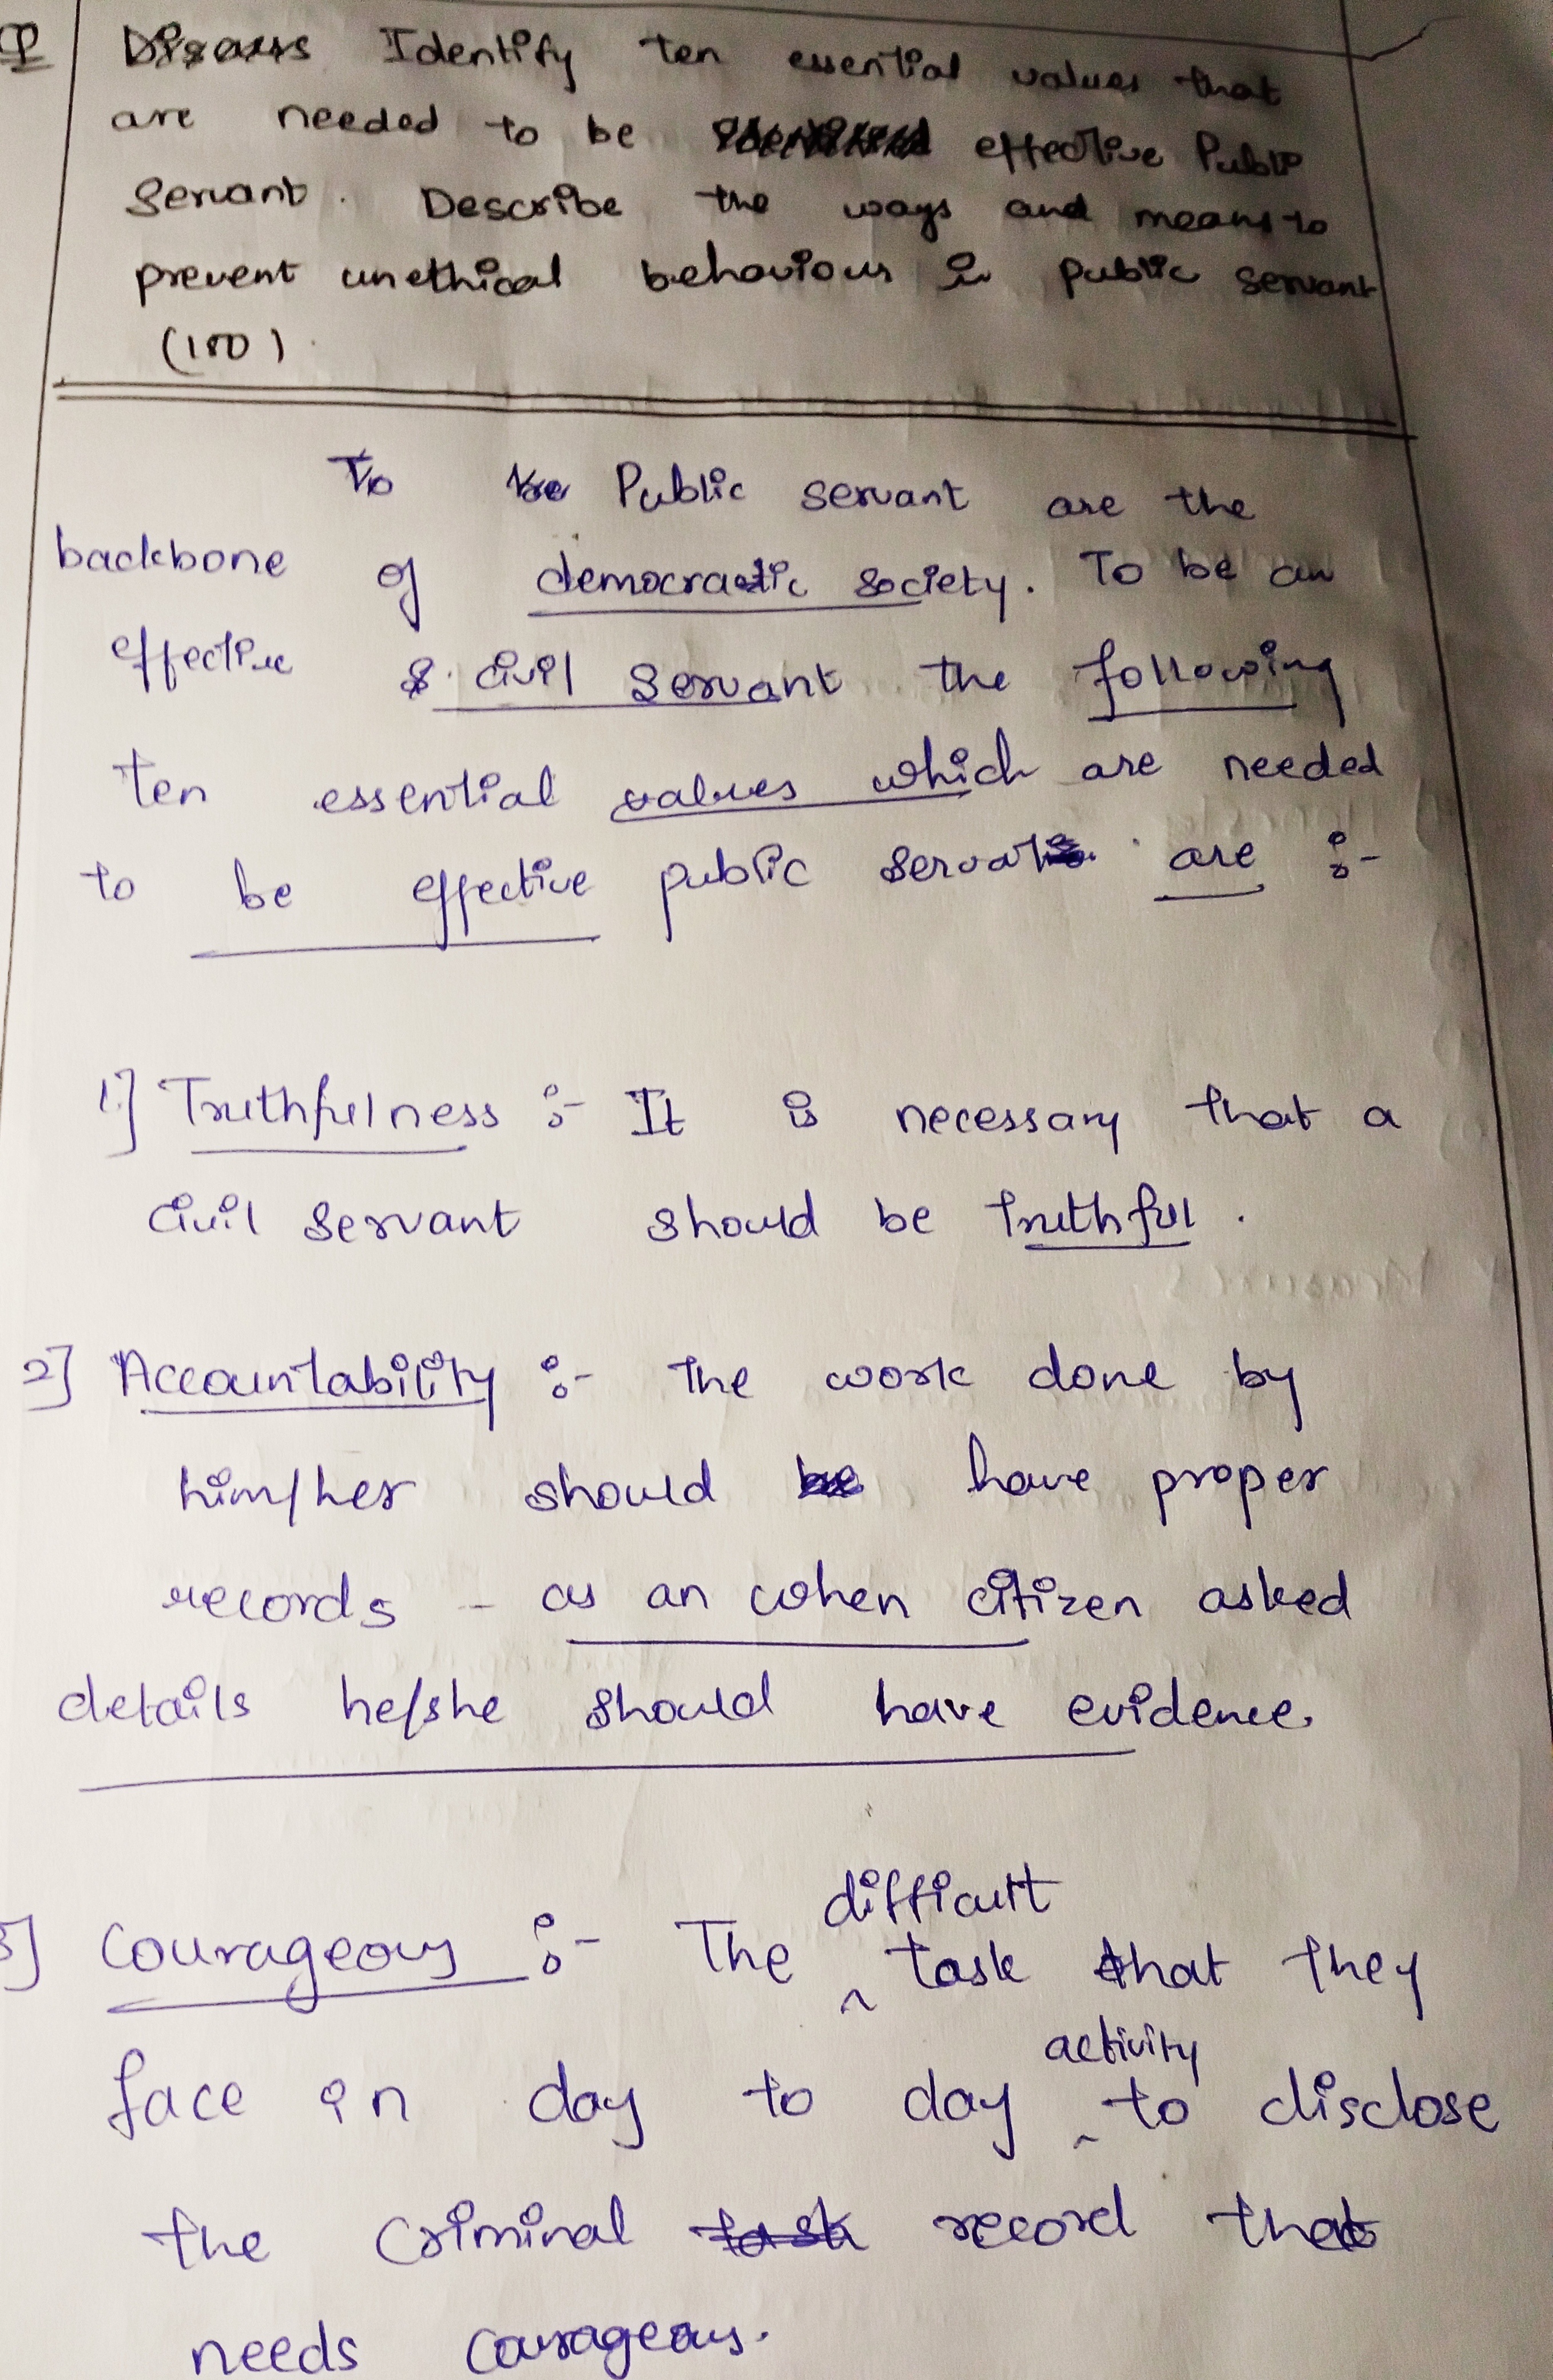 Q Discuss Identify ten essential values that
are needed to be effective Public
Servant. Describe the ways and means to
prevent unethical behaviour in public servant
(150)
To be Public servant are the
backbone of democratic society. To be an
effective & civil servant the following
ten essential values which are needed
to be effective public servat are :-
1.] Truthfulness :- It is necessary that a
civil servant should be truthful.
2] Accountability :- The work done by
him/her should be have proper
records - as an when citizen asked
details he/she should have evidence.
3] Courageous :- The difficult task that they
face in day to day activity to disclose
the criminal task record that
needs courageous.